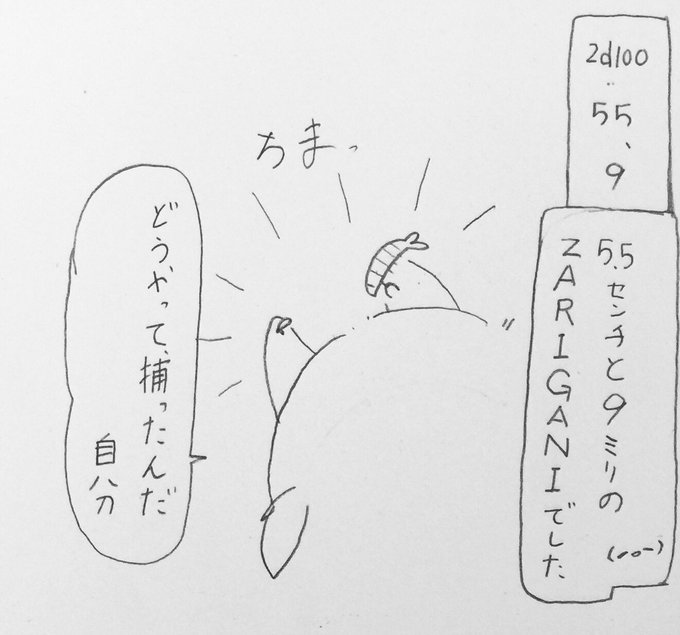 2d100
55、9
5.5センチと9ミリの
ZARIGANIでした
ちまっ
どうやって、捕ったんだ
自分